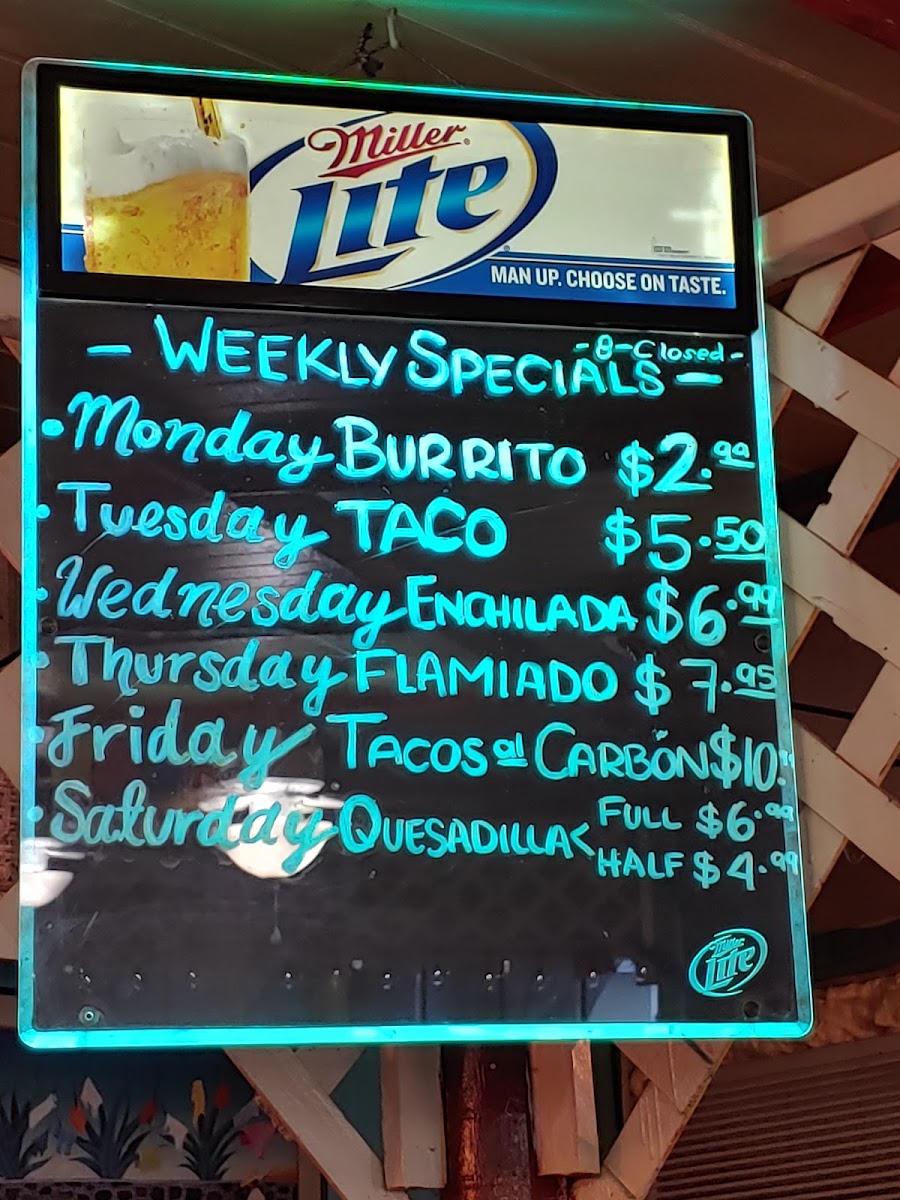 Miller
Lite
MAN UP. CHOOSE ON TASTE.
- WEEKLY SPECIALS -
-8-Closed-
• Monday BURRITO $2.99
• Tuesday TACO $5.50
• Wednesday ENCHILADA $6.99
• Thursday FLAMIADO $7.95
• Friday TACOS al CARBÓN $10.
• Saturday QUESADILLA < FULL $6.99
HALF $4.99
Miller
Lite